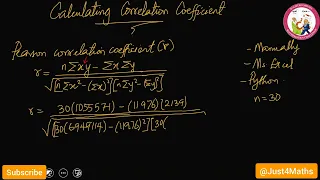 Calculating Correlation Coefficient
Pearson correlation coefficient (r)
r = nΣxy - Σx Σy / √[nΣx² - (Σx)²][nΣy² - (Σy)²]
- Manually
- Ms Excel
- Python
n = 30
r = 30(1055571) - (11976)(2139) / √[30(6949114) - (11976)²][30(
Subscribe
@Just4Maths